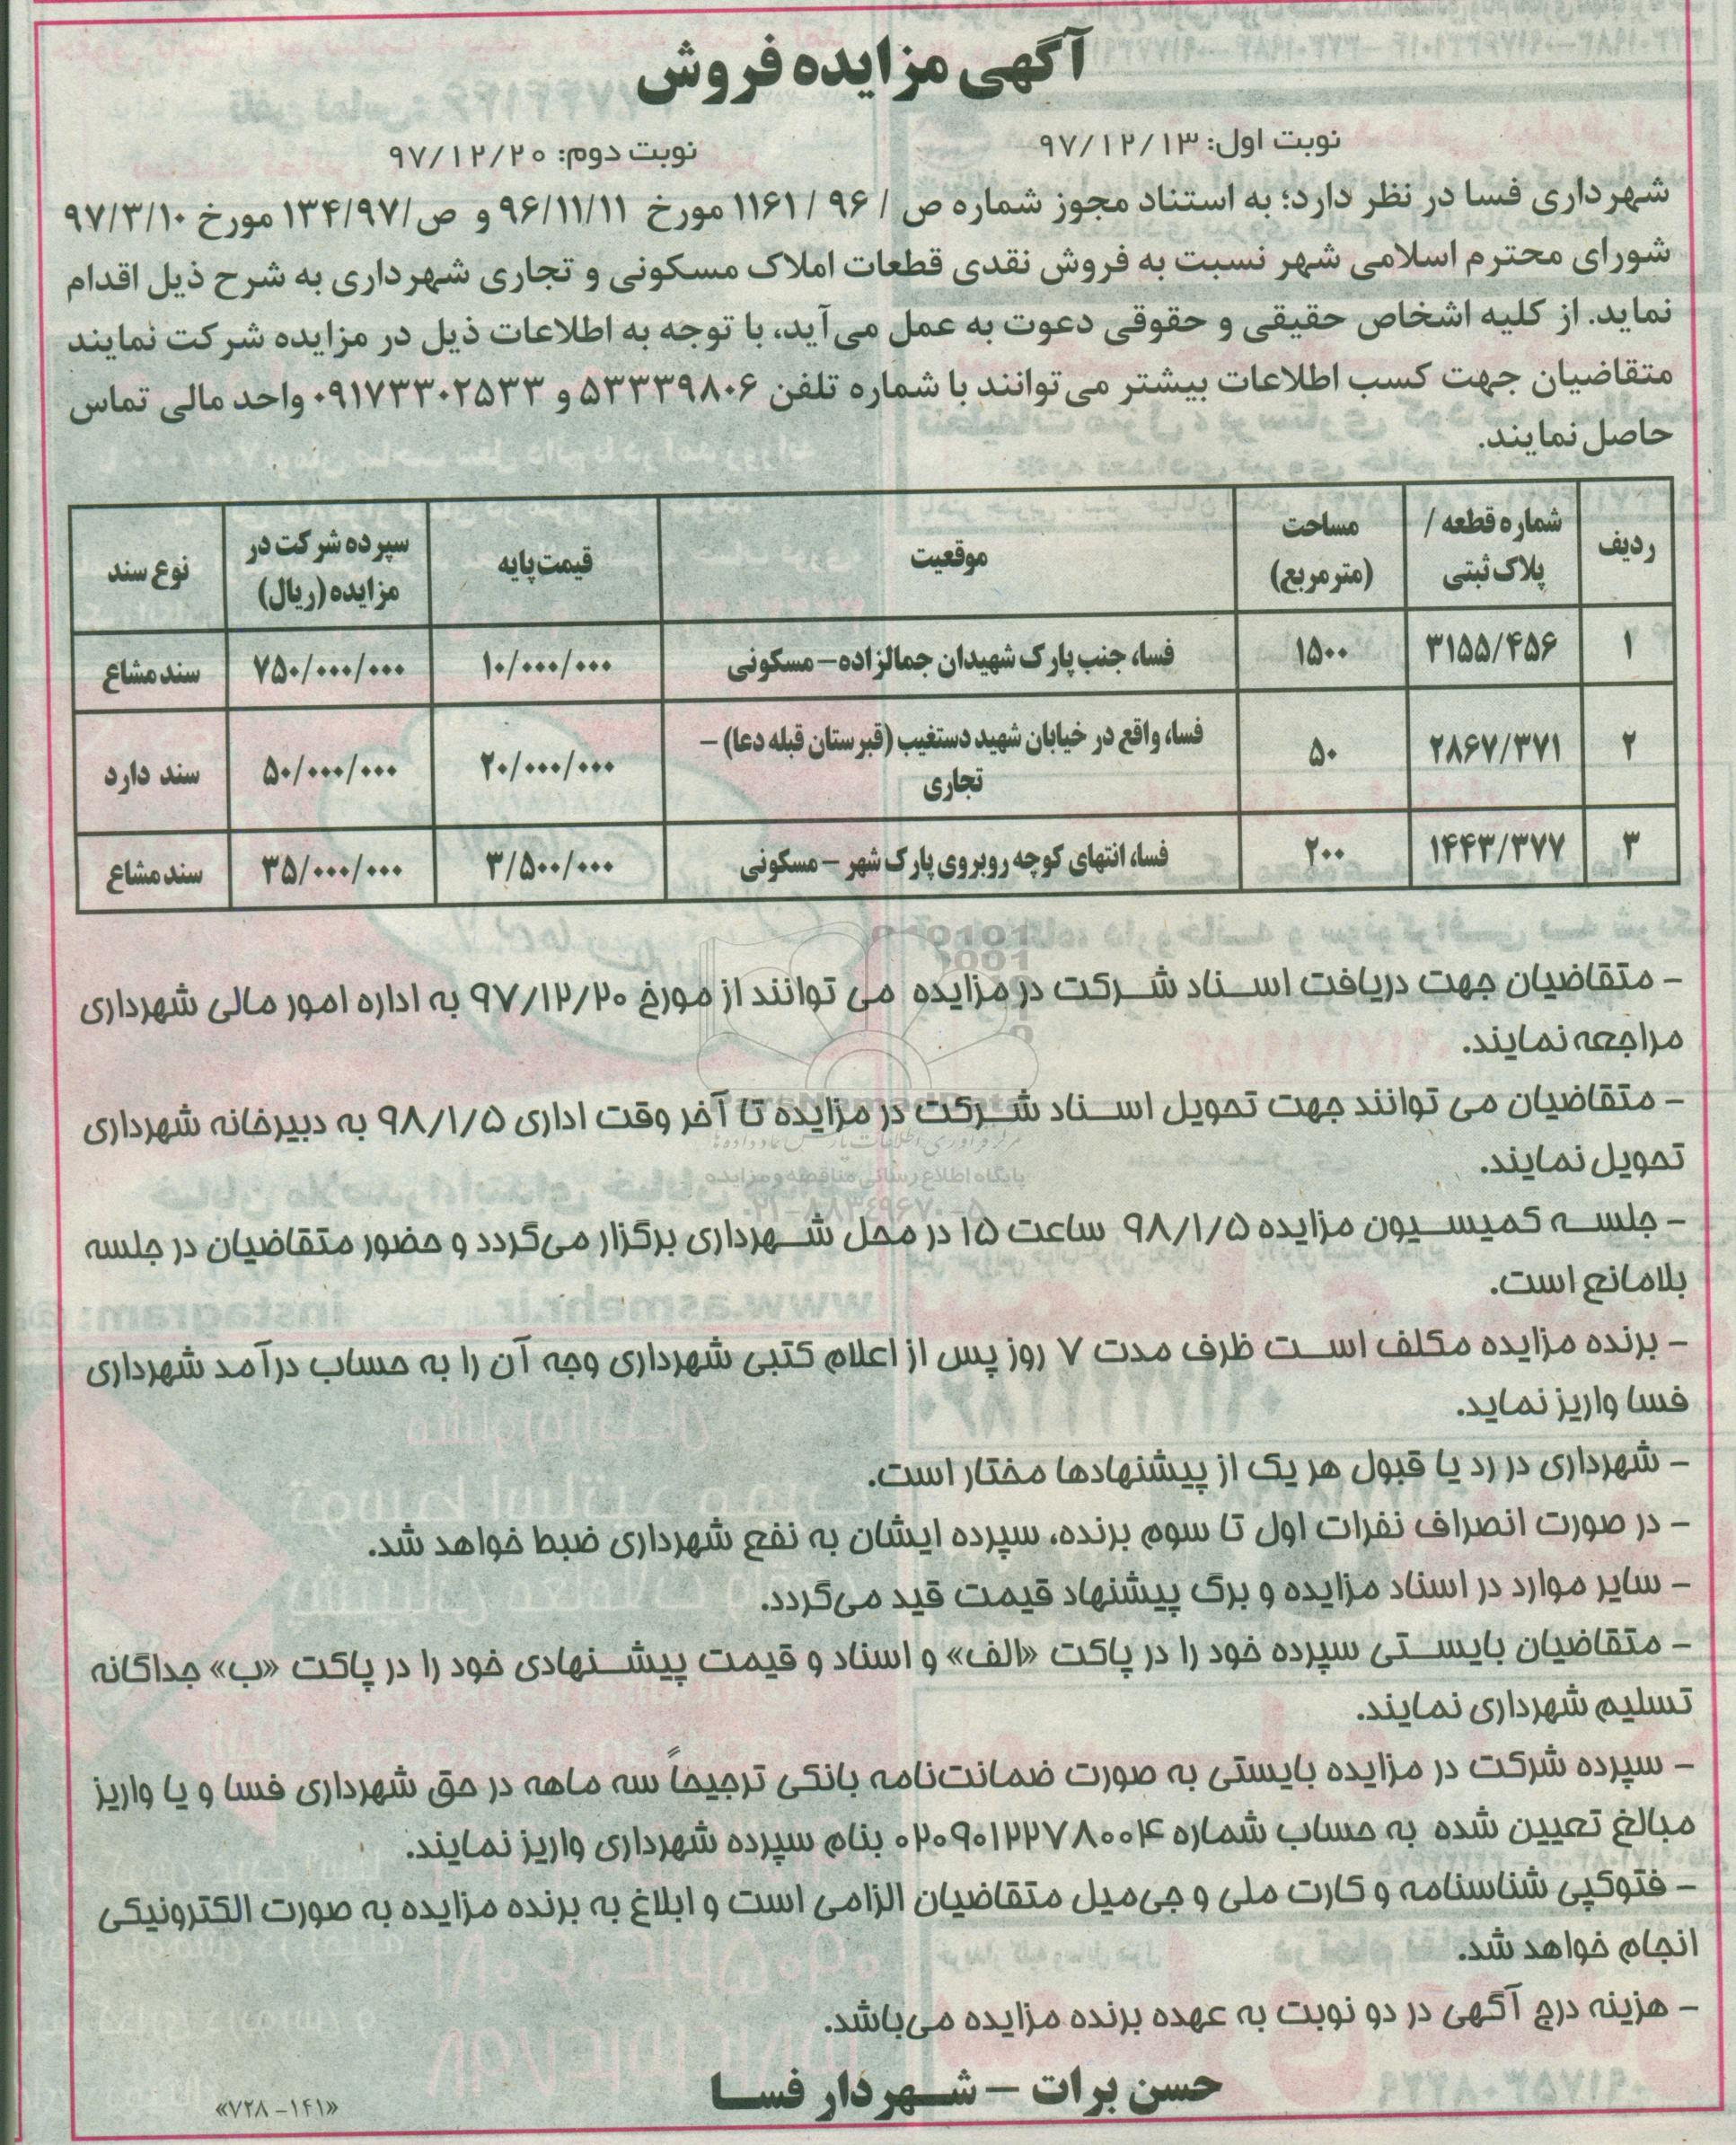 آگهی مزایده فروش
نوبت اول: ۹۷/۱۲/۱۳
نوبت دوم: ۹۷/۱۲/۲۰
شهرداری فسا در نظر دارد؛ به استناد مجوز شماره ص / ۹۶ / ۱۱۶۱ مورخ ۹۶/۱۱/۱۱ و ص/۱۳۴/۹۷ مورخ ۹۷/۳/۱۰
شورای محترم اسلامی شهر نسبت به فروش نقدی قطعات املاک مسکونی و تجاری شهرداری به شرح ذیل اقدام
نماید. از کلیه اشخاص حقیقی و حقوقی دعوت به عمل می‌آید، با توجه به اطلاعات ذیل در مزایده شرکت نمایند
متقاضیان جهت کسب اطلاعات بیشتر می‌توانند با شماره تلفن ۵۳۳۳۹۸۰۶ و ۰۹۱۷۳۳۰۲۵۳۳ واحد مالی تماس
حاصل نمایند.
ردیف | شماره قطعه / پلاک ثبتی | مساحت (مترمربع) | موقعیت | قیمت پایه | سپرده شرکت در مزایده (ریال) | نوع سند
۱ | ۳۱۵۵/۴۵۶ | ۱۵۰۰ | فسا، جنب پارک شهیدان جمالزاده – مسکونی | ۱۰/۰۰۰/۰۰۰ | ۷۵۰/۰۰۰/۰۰۰ | سند مشاع
۲ | ۲۸۶۷/۳۷۱ | ۵۰ | فسا، واقع در خیابان شهید دستغیب (قبرستان قبله دعا) – تجاری | ۲۰/۰۰۰/۰۰۰ | ۵۰/۰۰۰/۰۰۰ | سند دارد
۳ | ۱۴۴۳/۳۷۷ | ۲۰۰ | فسا، انتهای کوچه روبروی پارک شهر – مسکونی | ۳/۵۰۰/۰۰۰ | ۳۵/۰۰۰/۰۰۰ | سند مشاع
– متقاضیان جهت دریافت اسناد شرکت در مزایده می توانند از مورخ ۹۷/۱۲/۲۰ به اداره امور مالی شهرداری
مراجعه نمایند.
– متقاضیان می توانند جهت تحویل اسناد شرکت در مزایده تا آخر وقت اداری ۹۸/۱/۵ به دبیرخانه شهرداری
تحویل نمایند.
پایگاه اطلاع رسانی مناقصه و مزایده
– جلسه کمیسیون مزایده ۹۸/۱/۵ ساعت ۱۵ در محل شهرداری برگزار می‌گردد و حضور متقاضیان در جلسه
بلامانع است.
– برنده مزایده مکلف است ظرف مدت ۷ روز پس از اعلام کتبی شهرداری وجه آن را به حساب درآمد شهرداری
فسا واریز نماید.
– شهرداری در رد یا قبول هر یک از پیشنهادها مختار است.
– در صورت انصراف نفرات اول تا سوم برنده، سپرده ایشان به نفع شهرداری ضبط خواهد شد.
– سایر موارد در اسناد مزایده و برگ پیشنهاد قیمت قید می‌گردد.
– متقاضیان بایستی سپرده خود را در پاکت «الف» و اسناد و قیمت پیشنهادی خود را در پاکت «ب» جداگانه
تسلیم شهرداری نمایند.
– سپرده شرکت در مزایده بایستی به صورت ضمانت‌نامه بانکی ترجیحاً سه ماهه در حق شهرداری فسا و یا واریز
مبالغ تعیین شده به حساب شماره ۰۲۰۹۰۱۲۲۷۸۰۰۴ بنام سپرده شهرداری واریز نمایند.
– فتوکپی شناسنامه و کارت ملی و جی‌میل متقاضیان الزامی است و ابلاغ به برنده مزایده به صورت الکترونیکی
انجام خواهد شد.
– هزینه درج آگهی در دو نوبت به عهده برنده مزایده می‌باشد.
حسن برات – شهردار فسا
«۷۲۸ – ۱۴۱»